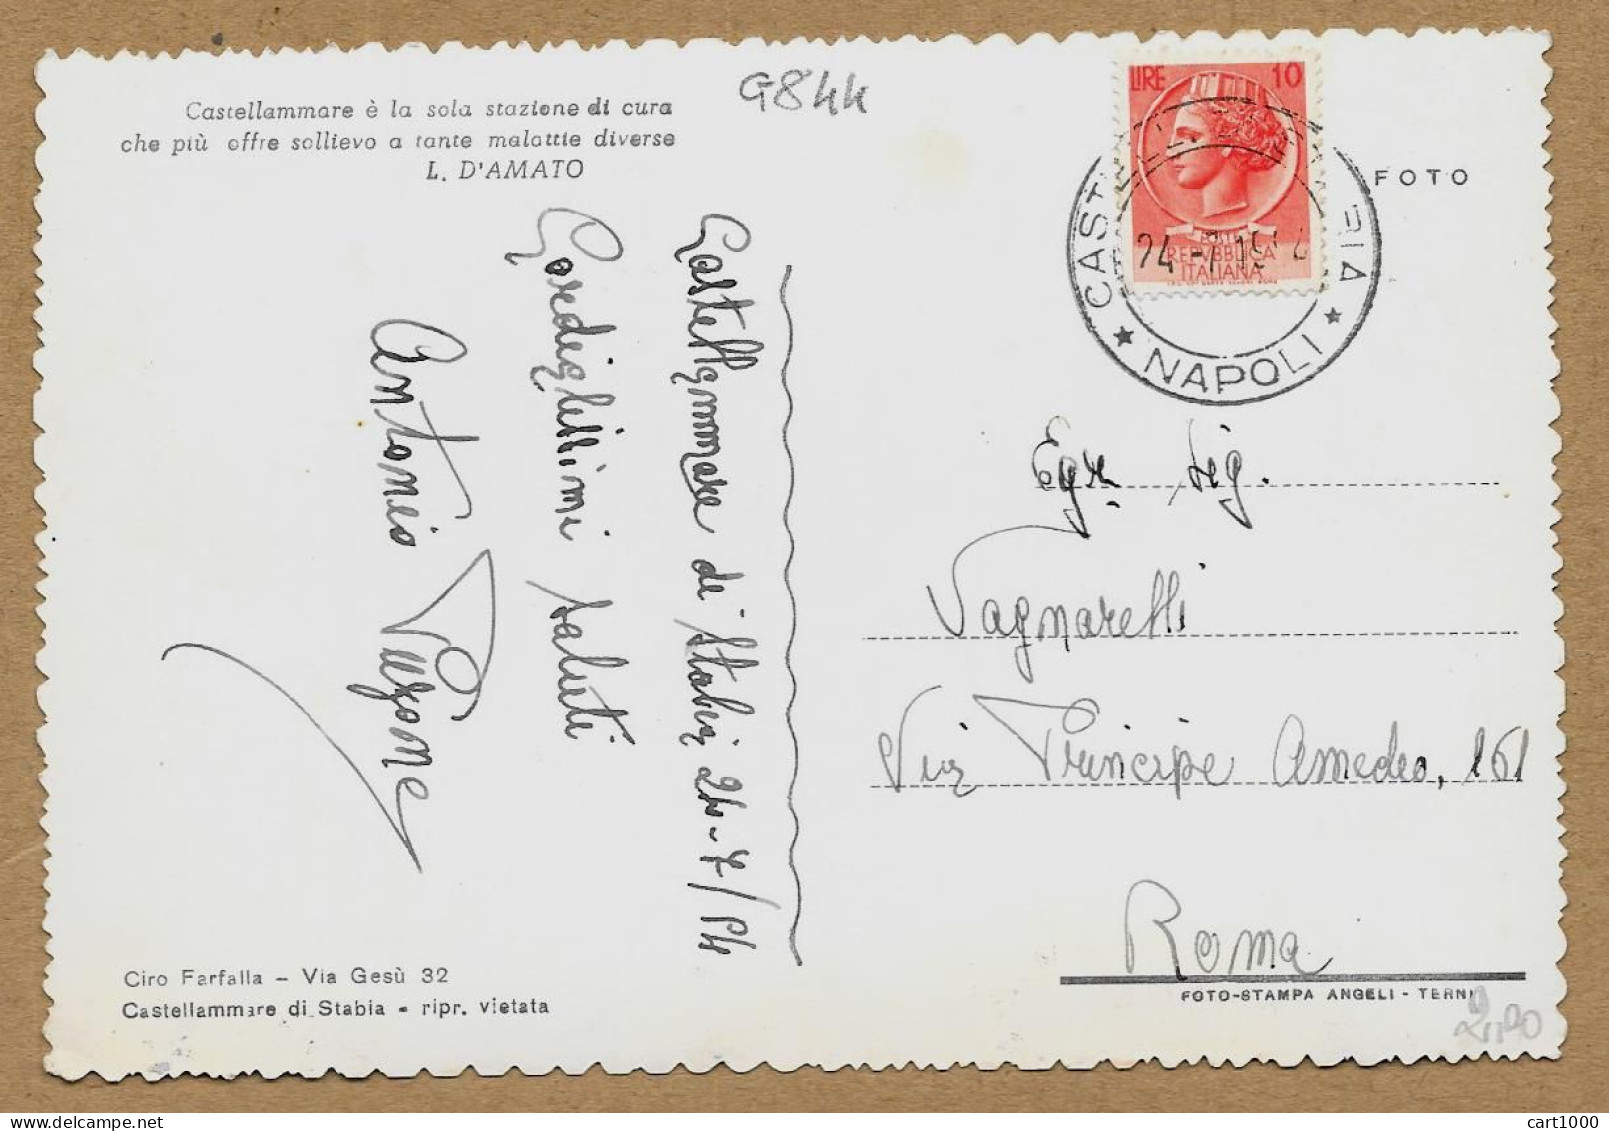 Castellammare è la sola stazione di cura
che più offre sollievo a tante malattie diverse
L. D'AMATO
G844
LIRE 10
POSTE
REPVBBLICA
ITALIANA
24-7 19
NAPOLI
FOTO
Castellammare di Stabia 24-7/54
Cordialissimi saluti
Antonio Puzone
Egr. Sig.
Vagnarelli
Via Principe Amedeo, 161
Roma
Ciro Farfalla - Via Gesù 32
Castellammare di Stabia - ripr. vietata
FOTO-STAMPA ANGELI - TERNI
cart1000